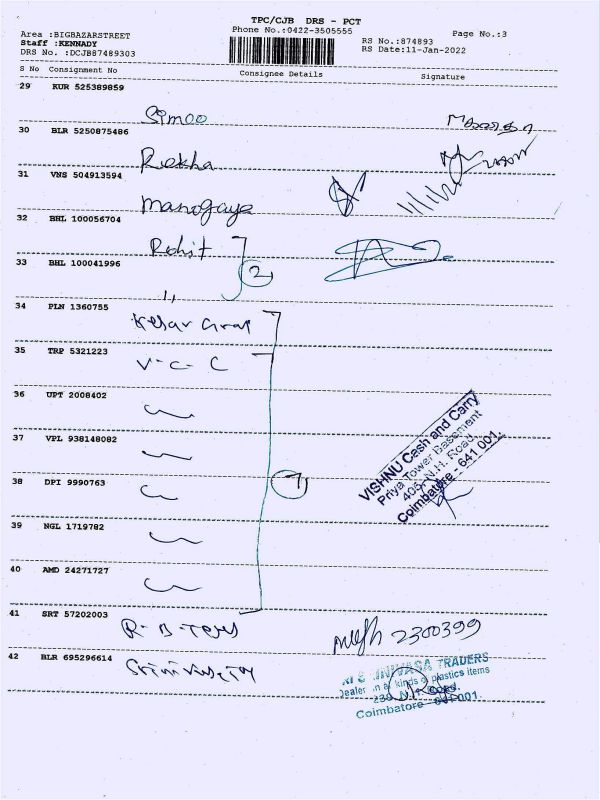 TPC/CJB DRS - PCT
Area :BIGBAZARSTREET
Phone No.:0422-3505555
Page No.:3
Staff :KENNADY
RS No.:874893
DRS No. :DCJB87489303
RS Date:11-Jan-2022
S No Consignment No Consignee Details Signature
29 KUR 525389859
Simoo
30 BLR 5250875486
Rekha
31 VNS 504913594
11/1/22
32 BHL 100056704
Rohit
2
33 BHL 100041996
"
34 PLN 1360755
35 TRP 5321223
V-C-C
36 UPT 2008402
37 VPL 938148082
38 DPI 9990763
7
39 NGL 1719782
40 AMD 24271727
41 SRT 57202003
42 BLR 695296614
2300399
VISHNU Cash and Carry
Priya Tower Basement
405, N.H. Road,
Coimbatore - 641 001.
TRADERS
Dealer in all kinds of plastics items
Coimbatore - 641 001.